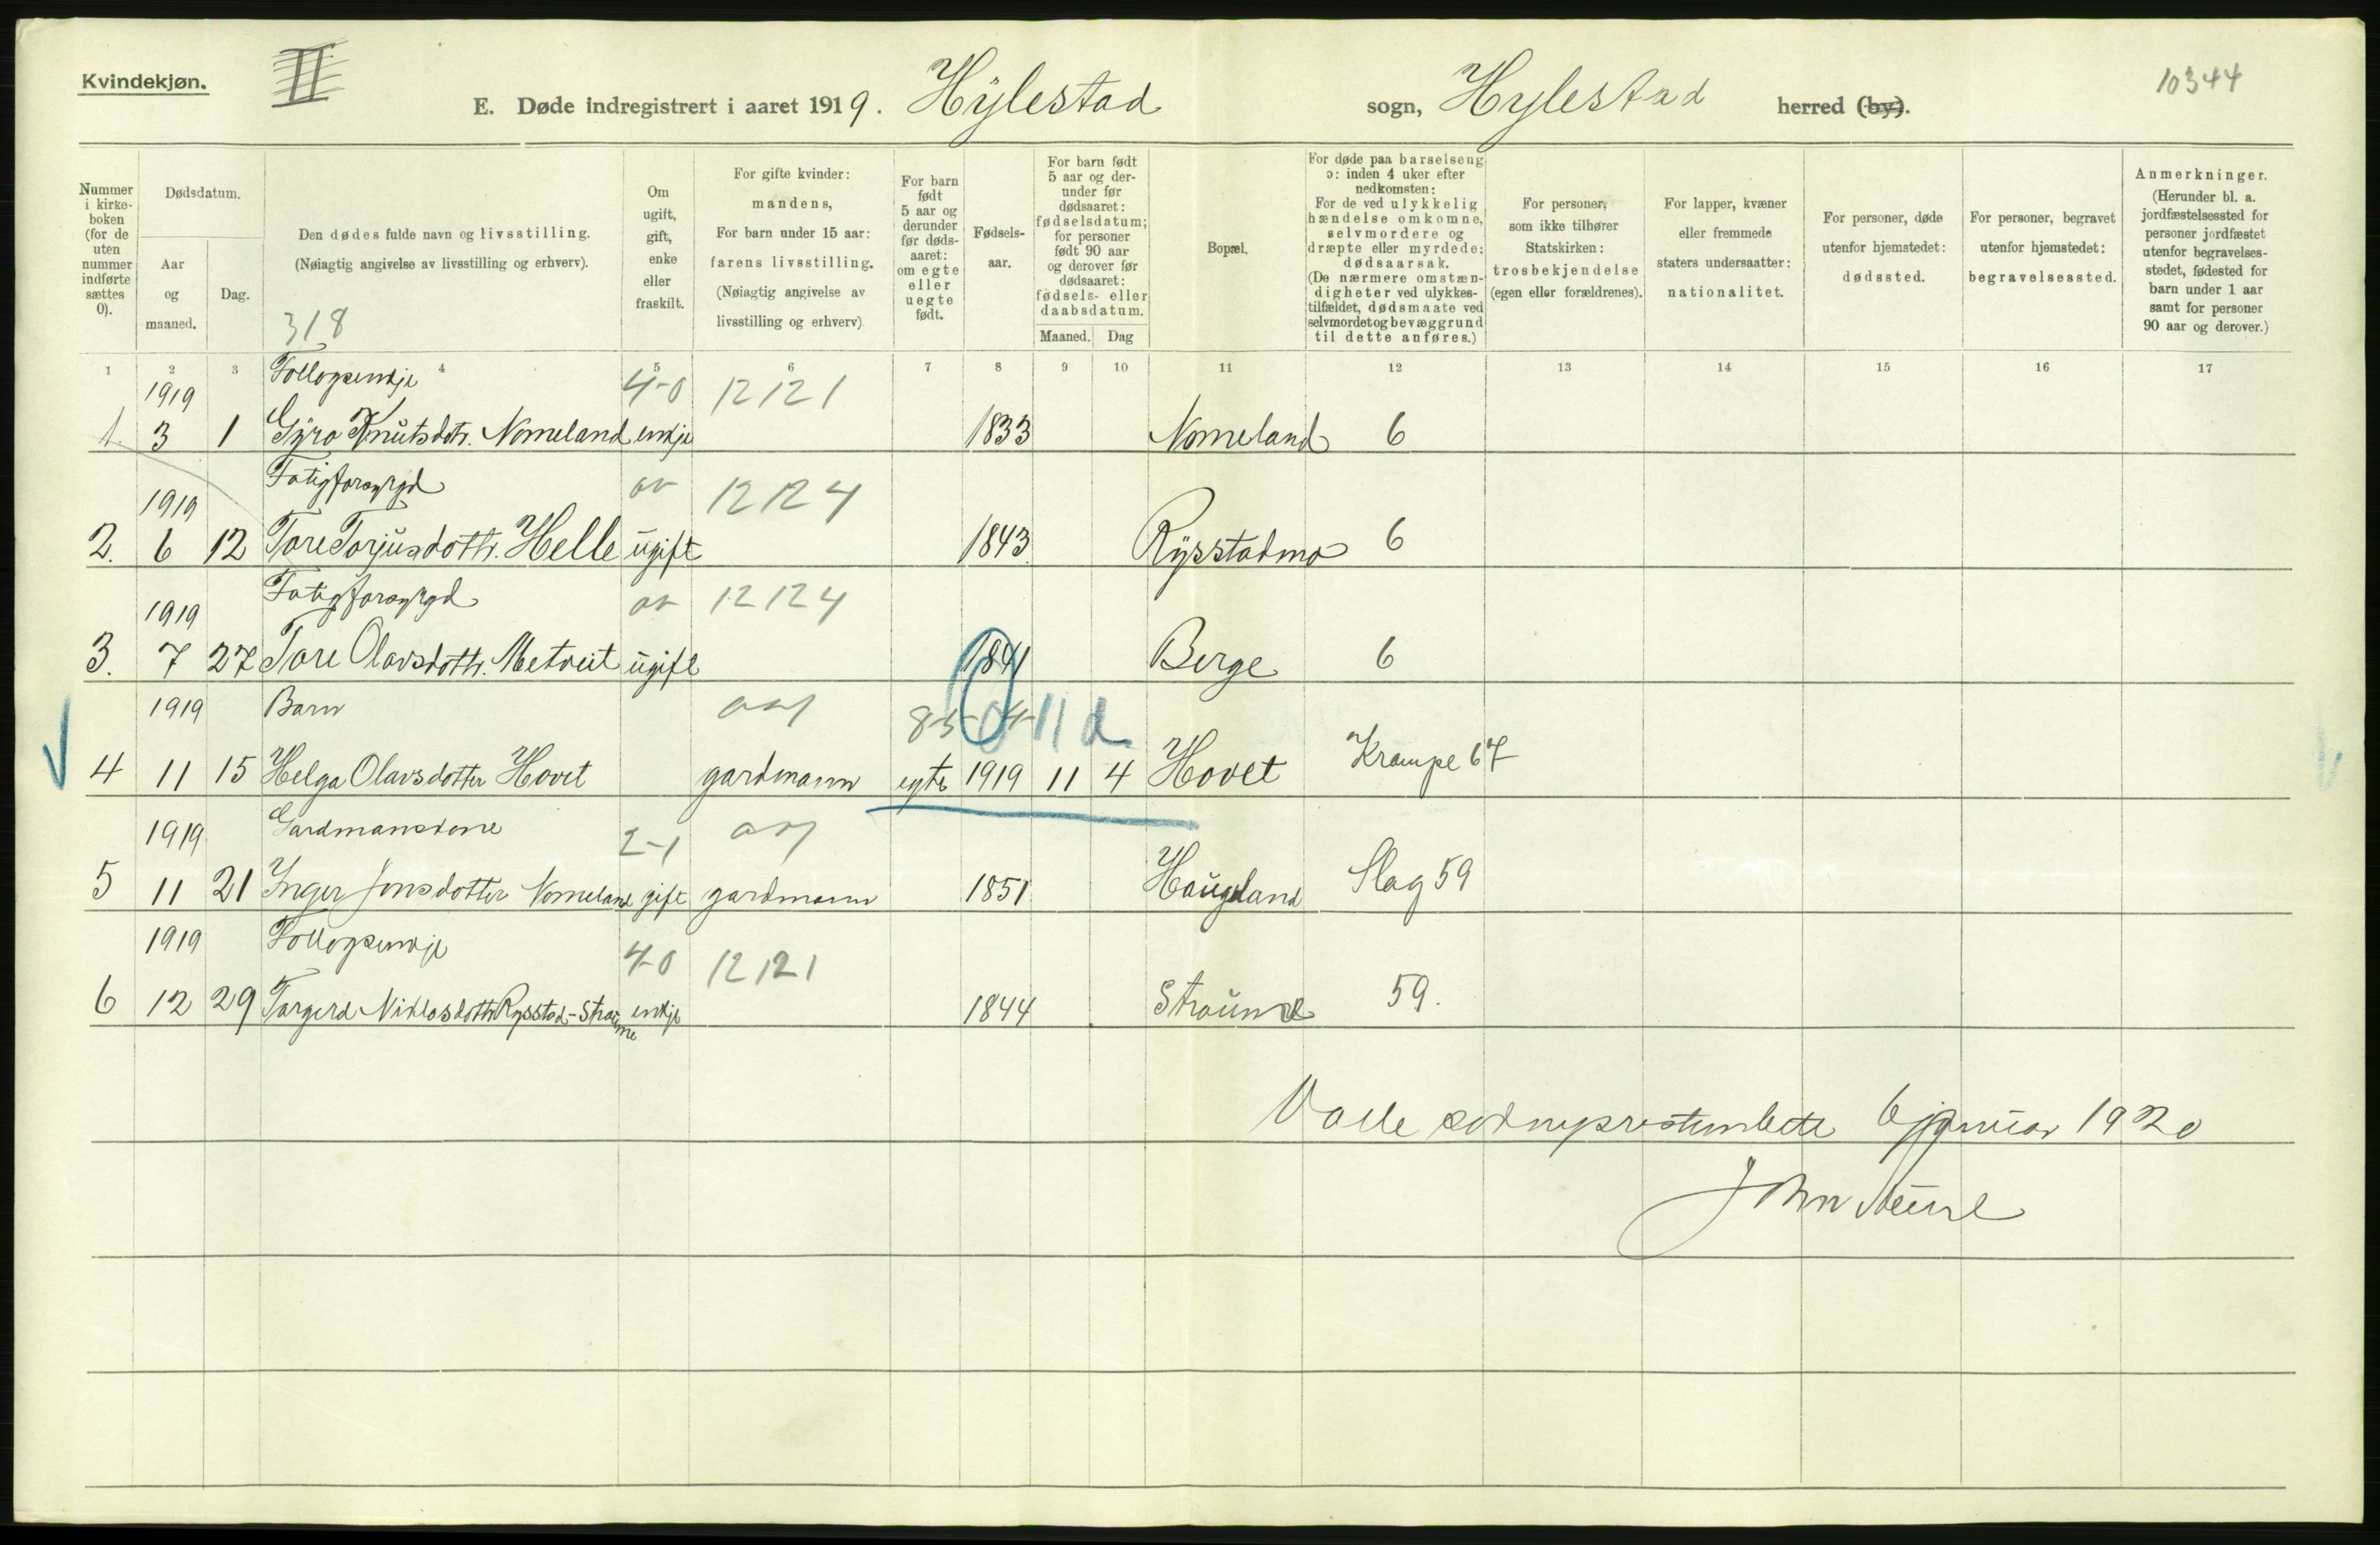 Kvindekjøn.
II
E. Døde indregistrert i aaret 1919. Hylestad sogn, Hylestad herred (by).
10344
Nummer i kirke-boken (for de uten nummer indførte sættes 0).
Dødsdatum.
Aar og maaned.
Dag.
Den dødes fulde navn og livsstilling.
(Nøiagtig angivelse av livsstilling og erhverv).
318
Om ugift, gift, enke eller fraskilt.
For gifte kvinder: mandens,
For barn under 15 aar: farens livsstilling.
(Nøiagtig angivelse av livsstilling og erhverv)
For barn født 5 aar og derunder før døds-aaret: om egte eller uegte født.
Fødsels-aar.
For barn født 5 aar og der-under før dødsaaret: fødselsdatum; for personer født 90 aar og derover før dødsaaret: fødsels- eller daabsdatum.
Maaned. Dag
Bopæl.
For døde paa barselseng ɔ: inden 4 uker efter nedkomsten:
For de ved ulykkelig hændelse omkomne, selvmordere og dræpte eller myrdede: dødsaarsak.
(De nærmere omstæn-digheter ved ulykkes-tilfældet, dødsmaate ved selvmordet og bevæggrund til dette anføres.)
For personer, som ikke tilhører Statskirken: trosbekjendelse (egen eller forældrenes).
For lapper, kvæner eller fremmede staters undersaatter: nationalitet.
For personer, døde utenfor hjemstedet: dødssted.
For personer, begravet utenfor hjemstedet: begravelsessted.
Anmerkninger.
(Herunder bl. a. jordfæstelsessted for personer jordfæstet utenfor begravelses-stedet, fødested for barn under 1 aar samt for personer 90 aar og derover.)
1 2 3 4 5 6 7 8 9 10 11 12 13 14 15 16 17
1919 Follogsenkje 4-0 12121
1. 3 1 Gyro Knutsdotr. Nomeland enkje 1833 Nomeland 6
1919 Fatigforsyrgd 12124
2. 6 12 Tore Torjusdottr. Helle ugift 1843 Rysstadmo 6
1919 Fatigforsyrgd 12124
3. 7 27 Tore Olavsdottr. Metveit ugift 1841 Berge 6
1919 Barn 11 d
4 11 15 Helga Olavsdotter Hovet gardmann egte 1919 11 4 Hovet Krampe 67
1919 Gardmanskone 2-1
5 11 21 Inger Jonsdotter Nomeland gift gardmann 1851 Haugland Slag 59
1919 Follogsenkje 4-0 12121
6 12 29 Targerd Niklosdottr Rysstad-Straume enkje 1844 Straume 59.
Valle sokneprestembete 6 januar 1920
John